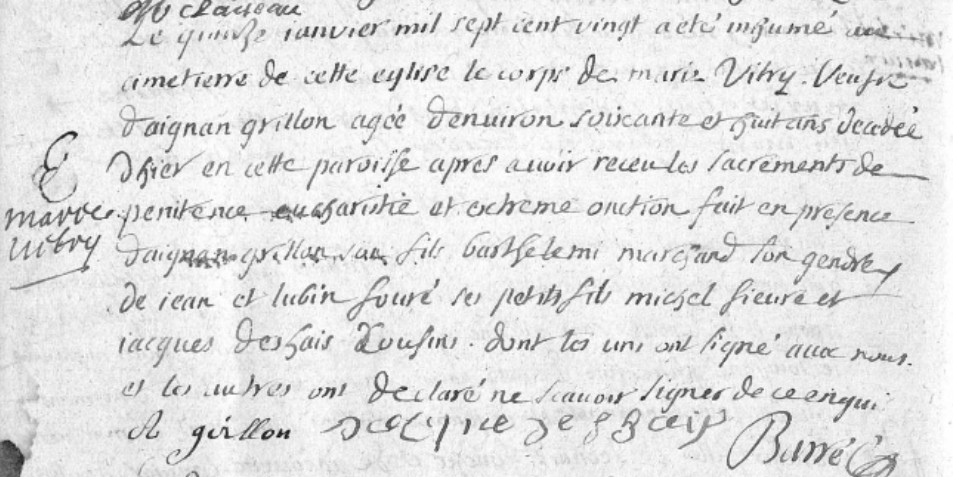 Le quinze janvier mil sept cent vingt a eté inhumé
cimetierre de cette eglise le corps de marie Vitry. Veufve
d'aignan grillon agée d'environ soixante et huit ans decedée
d'hier en cette paroisse apres avoir receu les sacrements de
marie
vitry
penitence eucharistie et extreme onction fait en presence
d'aignan grillon son fils barthelemi marchand son gendre
de jean et lubin fouré ses petits fils michel fieuré et
jacques deshais Cousins. dont les uns ont signé avec nous.
et les autres ont declaré ne scavoir signer de ce enqui
A grillon Jacque deshais Barré